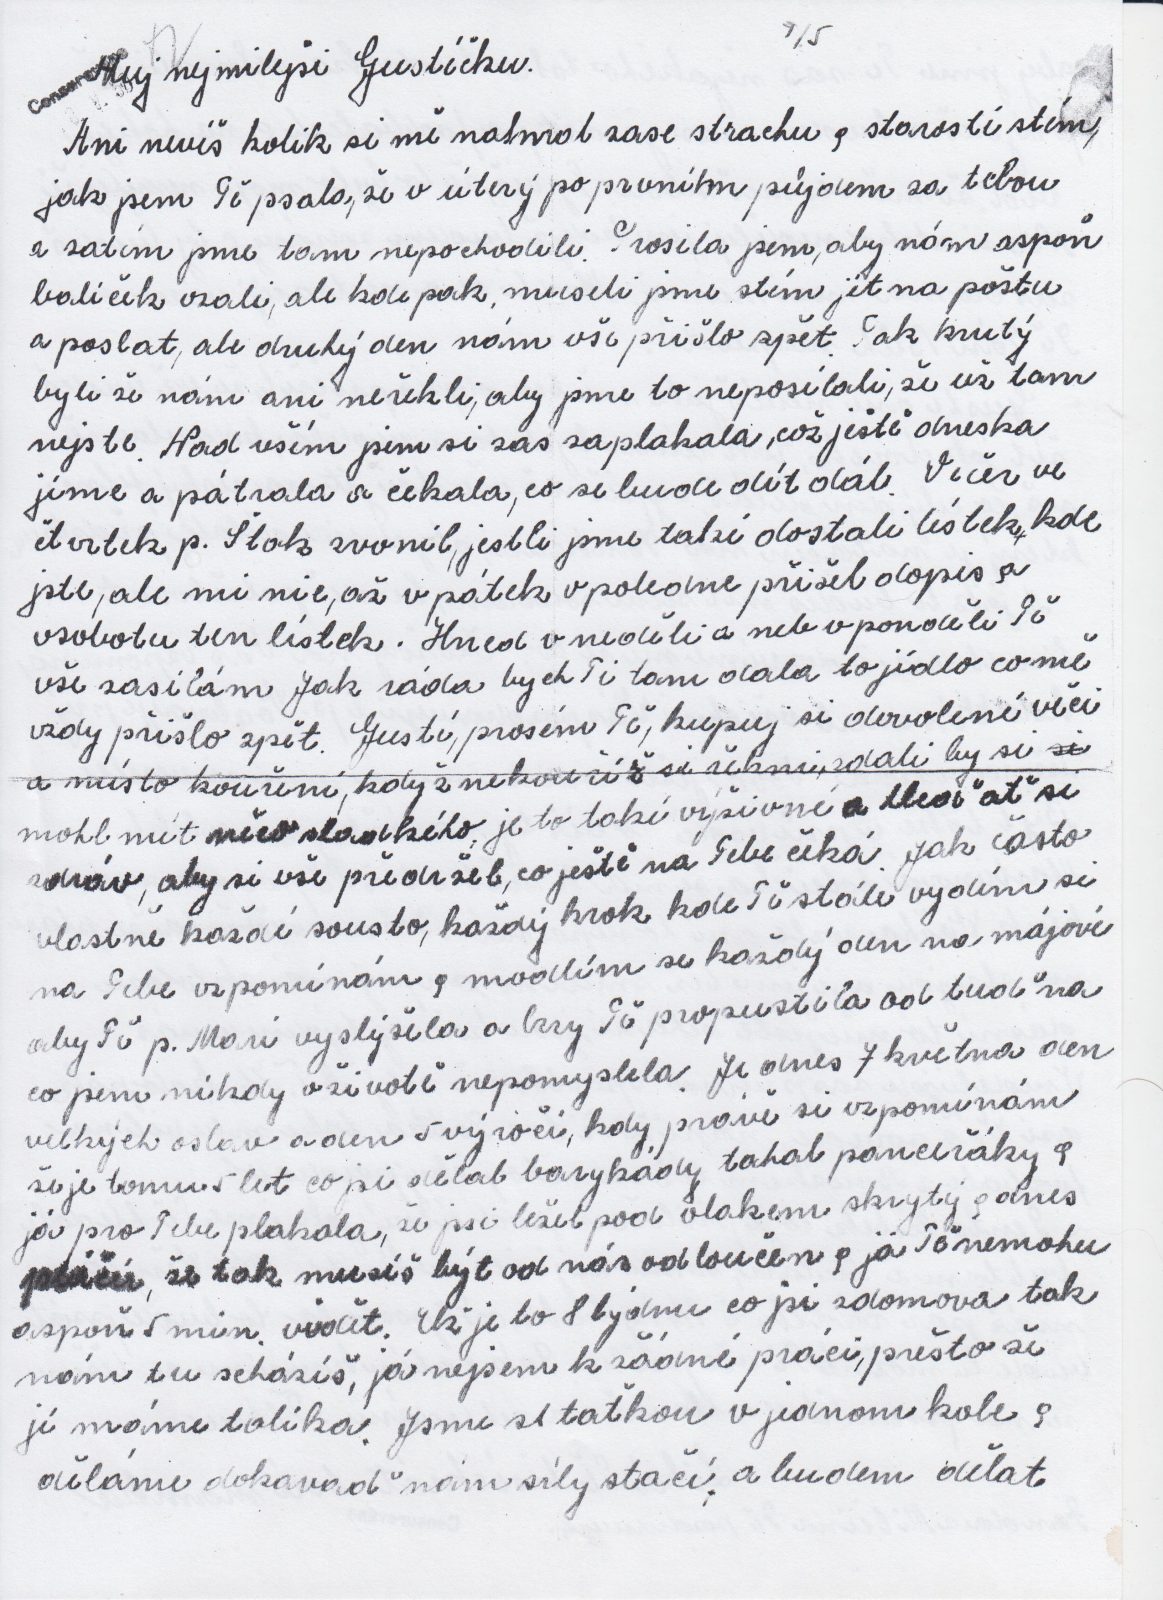 9/5
Censurováno
Můj nejmilejší Gustíčku.
Ani nevíš kolik si mě nahnal zase strachu a starostí stím,
jak jsem Tě psala, že v úterý po prvním půjdem za tebou
a zatím jsme tam nepochodili. Prosila jsem, aby nám aspoň
balíček vzali, ale kde pak, museli jsme stím jít na poštu
a poslat, ale druhý den nám vše přišlo zpět. Tak krutý
byli že nám ani neřekli, aby jsme to neposílali, že už tam
nejste. Nad vším jsem si zas zaplakala, což ještě dneska
jíme a pátrala a čekala, co se bude dít dál. Večer ve
čtvrtek p. Štok zvonil, jestli jsme také dostali lístek, kde
jste, ale mi nic, až v pátek v poledne přišel dopis a
vsobotu ten lístek. Hned v neděli a neb v pondělí Tě
vše zasílám Jak ráda bych Ti tam dala to jídlo co mě
vždy přišlo zpět. Gustí, prosím Tě, kupuj si dovolené věci
a místo kouření, když nekouříš si řekni, zdali by si si
mohl mít něco sladkého, je to také výživné a hleď ať si
zdráv, aby si vše předržel, co ještě na Tebe čeká. Jak často
vlastně každé sousto, každý krok kde Tě stále vydím si
na Tebe vzpomínám a modlím se každý den na májové
aby Tě p. Mari vyslyšela a brzy Tě propustila od tud na
co jsem nikdy v životě nepomyslela. Je dnes 7 května den
velkých oslav a den 5 výročí, kdy právě si vzpomínám
že je tomu 5 let co jsi dělal barykády tahal pancéřáky a
já pro Tebe plakala, že jsi ležel pod vlakem skrytý a dnes
pláču, že tak musíš být od nás odloučen a já Tě nemohu
aspoň 5 min. vidět. Už je to 8 týdnu co jsi zdomova tak
nám tu scházíš, já nejsem k žádné práci, přesto že
jí máme tolika. Jsme st taťkou v jednom kole a
děláme dokavaď nám síly stačí, a budem dělat